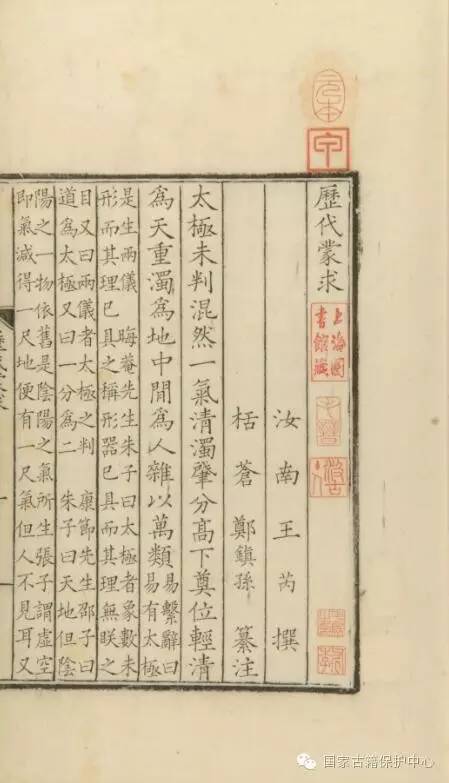 元本
甲
歷代蒙求
上海圖
書館藏
汝南王芮撰
栝蒼鄭鎮孫纂注
太極未判混然一氣清濁肇分高下奠位輕清
爲天重濁爲地中閒爲人雜以萬類
易繫辭曰
易有太極
是生兩儀 晦菴先生朱子曰太極者象數未
形而其理已具之稱形器已具而其理無眹之
目又曰兩儀者太極之判 康節先生邵子曰
道爲太極又曰一分爲二 朱子曰天地但陰
陽之一物依舊是陰陽之氣所生張子謂虛空
即氣減得一尺地便有一尺氣但人不見耳又
国家古籍保护中心